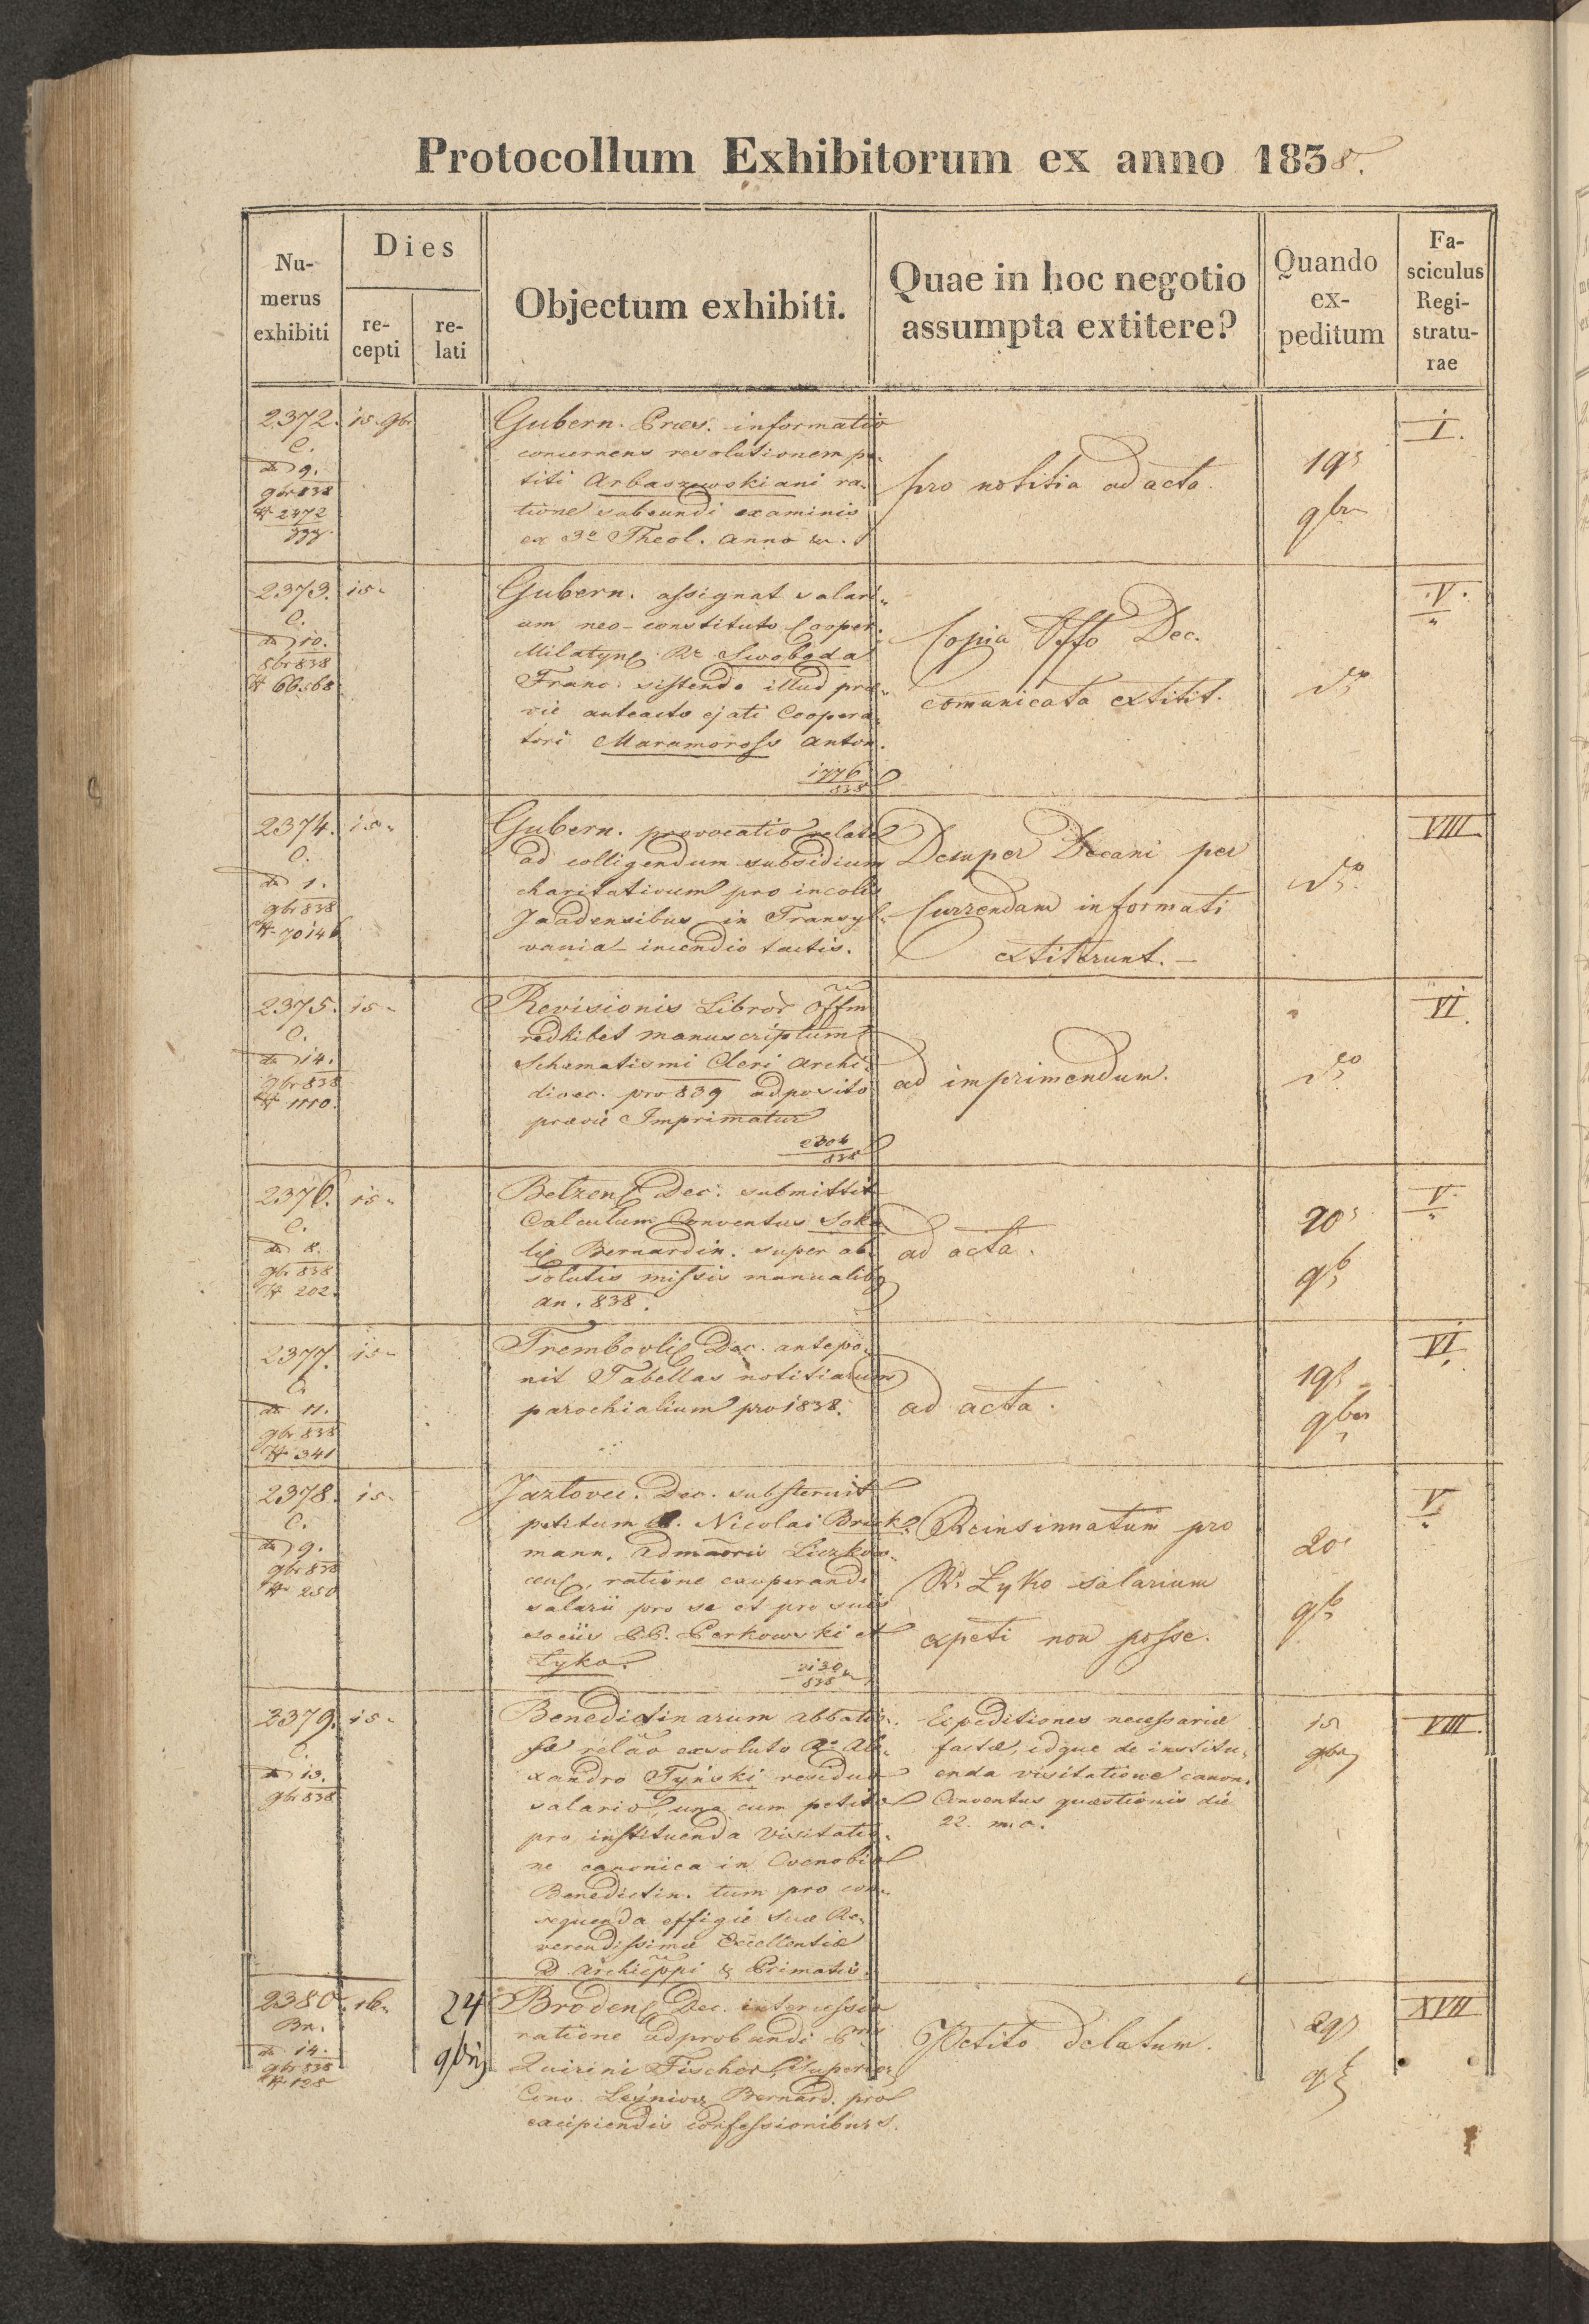 Protocollum Exhibitorum ex anno 1838.
Nu-
merus
exhibiti
Dies
re-
cepti
re-
lati
Objectum exhibiti.
Quae in hoc negotio
assumpta extitere?
Quando
ex-
peditum
Fa-
sciculus
Regi-
stratu-
rae
2372.
C.
dd 9.
9br 838
N 2472
15. 9br
Gubern. Praes. informatio
concernens resolutionem pe-
titi Arbaszewskiani ra-
tione subeundi examinis
ex 3o Theol. anno
pro notitia ad acta.
19
9br
I.
2373.
C.
dd 10.
8br 838
N 66568
15.
Gubern. assignat salari-
um neo-constituto Cooper.
Milatyn Rr Swoboda
Franc. sistendo illud prae-
vie anteacto ejati Coopera-
tori Maramoross Anton.
1776
838
Copia Offo Dec.
comunicata extitit.
do
V.
2374.
C.
dd 1.
9br 838
N 70146
15.
Gubern. provocatio relate
ad colligendum subsidium
charitativum pro incolis
Jaadensibus in Transyl-
vania incendio tactis.
Desuper Decani per
Currendam informati
extiterunt. -
do
VIII
2375.
C.
dd 14.
9br 838
N 1110.
15.
Revisionis Libror Offm
redhibet manuscriptum
Schematismi Cleri Archi-
dioec. pro 839 adposito
praevie Imprimatur
2304
838
ad imprimendum.
do
VI.
2376.
C.
dd 8.
9br 838
N 202.
15.
Belzens Dec. submittit
Calculum Conventus Soka-
lie Bernardin. super ab-
solutis missis manualib
an. 838.
ad acta.
20
9b
V.
2377.
C.
dd 11.
9br 838
N 341
15.
Trembovlie Dec. antepo-
nit Tabellas notitiarum
parochialium pro 1838.
ad acta.
19
9br
VI.
2378.
C.
dd 9.
9br 838
N 250
15.
Jazlovec. Dec. substernit
petitum R. Nicolai Brück-
mann, Admtoris
cens, ratione exoperandi
salarii pro se et pro suis
sociis PP. Perkowski et
Łyko.
2130
838
Reinsinuatum pro
Rr. Łyko salarium
expeti non posse.
20
9b
V.
2379.
C.
dd 13.
9br 838
15.
Benedictinarum abbatis-
sa relão exsoluto Ro Ale-
xandro Tyński residuo
salario, una cum petito
pro instituenda Visitatio-
ne canonica in Coenobio
Benedictin. tum pro con-
sequenda effigie Suae Re-
verendissimae Excellentiae
D Archieppi & Primatis.
Expeditiones necessariae
factae, idque de institu-
enda visitatione canon.
Conventus quaestionis die
22. m. a.
15
9br
VIII.
2380.
Br.
dd 14.
9br 838
N 128
16.
24
9bris
Brodens Dec. intercessio
ratione adprobandi
Quirini Fischer, Superior
Conv. Leśniov. Bernard. pro
excipiendis confessionibus.
Petito delatum.
29
9b
XVII